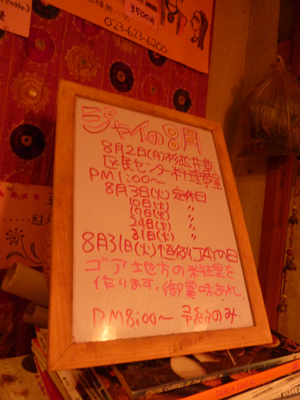 3500円
023-623-6200
ジャイの8月
8月2日(月)杉並井草
区民センター料理教室
PM1:00〜
8月3日(火)定休日
10日(火) 〃
17日(火) 〃
24日(火) 〃
31日(火) 〃
8月31日(火)恒例JAYの日
ゴア地方の料理を
作ります,御賞味あれ,
PM8:00〜 予約のみ